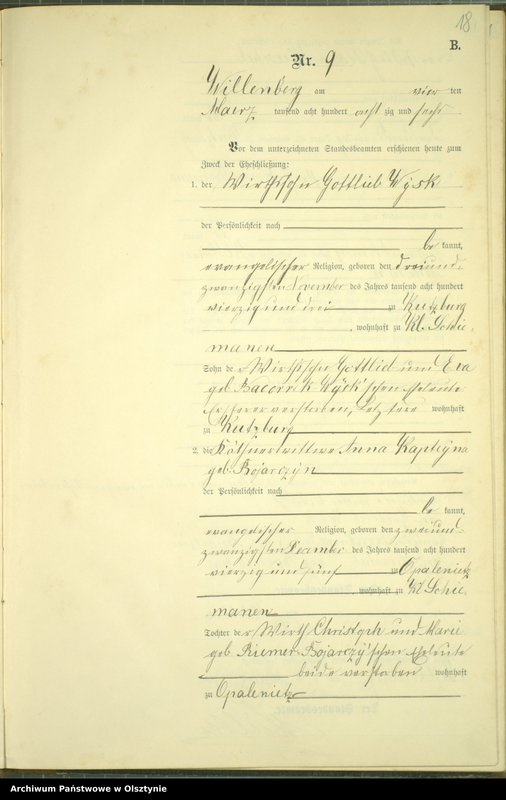 18
B.
Nr. 9
Willenberg am vier ten
Maerz tausend acht hundert acht zig und sechs
Vor dem unterzeichneten Standesbeamten erschienen heute zum
Zweck der Eheschließung:
1. der Wirthssohn Gottlieb Wysk
der Persönlichkeit nach
be kannt,
evangelischer Religion, geboren den dreiund-
zwanzigsten November des Jahres tausend acht hundert
vierzig und drei zu Kutzburg
, wohnhaft zu Kl. Schie-
manen
Sohn de r Wirthssohn Gottlieb und Eva
geb. Wysk'schen Eheleute
Ersterer verstorben, Letztere wohnhaft
zu Kutzburg
2. die Käthnerwittwe Anna Kapteyna
geb. Bojarczyn
der Persönlichkeit nach
be kannt,
evangelischer Religion, geboren den zweiund-
zwanzigsten Dezember des Jahres tausend acht hundert
vierzig und fünf zu Opalenietz
, wohnhaft zu Kl. Schie-
manen
Tochter de r Wirth Christoph und Marie
geb. Riemer Bojarczy'schen Eheleute
beide verstorben wohnhaft
zu Opalenietz
Archiwum Państwowe w Olsztynie